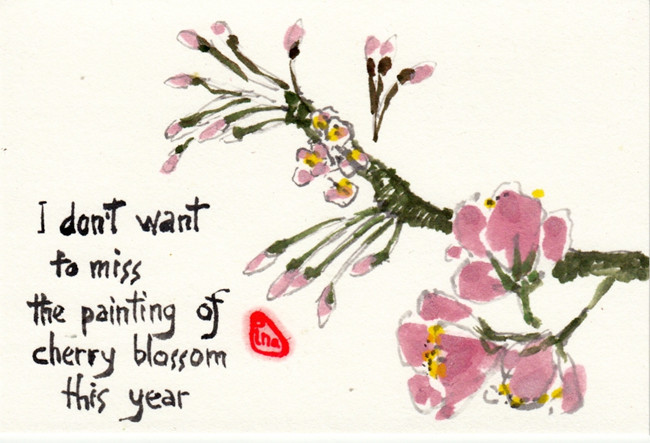 I don't want
to miss
the painting of
cherry blossom
this year
ina